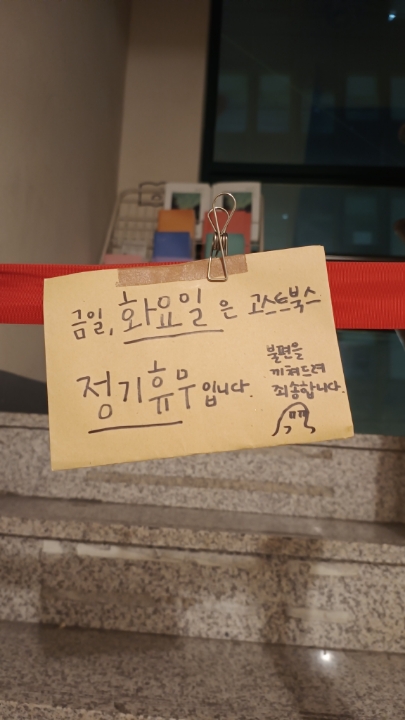 금일, 화요일은 고스트북스
정기휴무입니다.
불편을
끼쳐드려
죄송합니다.